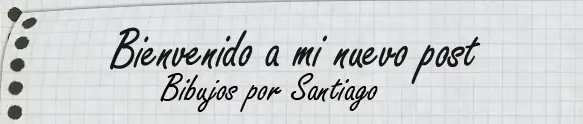 Bienvenido a mi nuevo post
Bibujos por Santiago